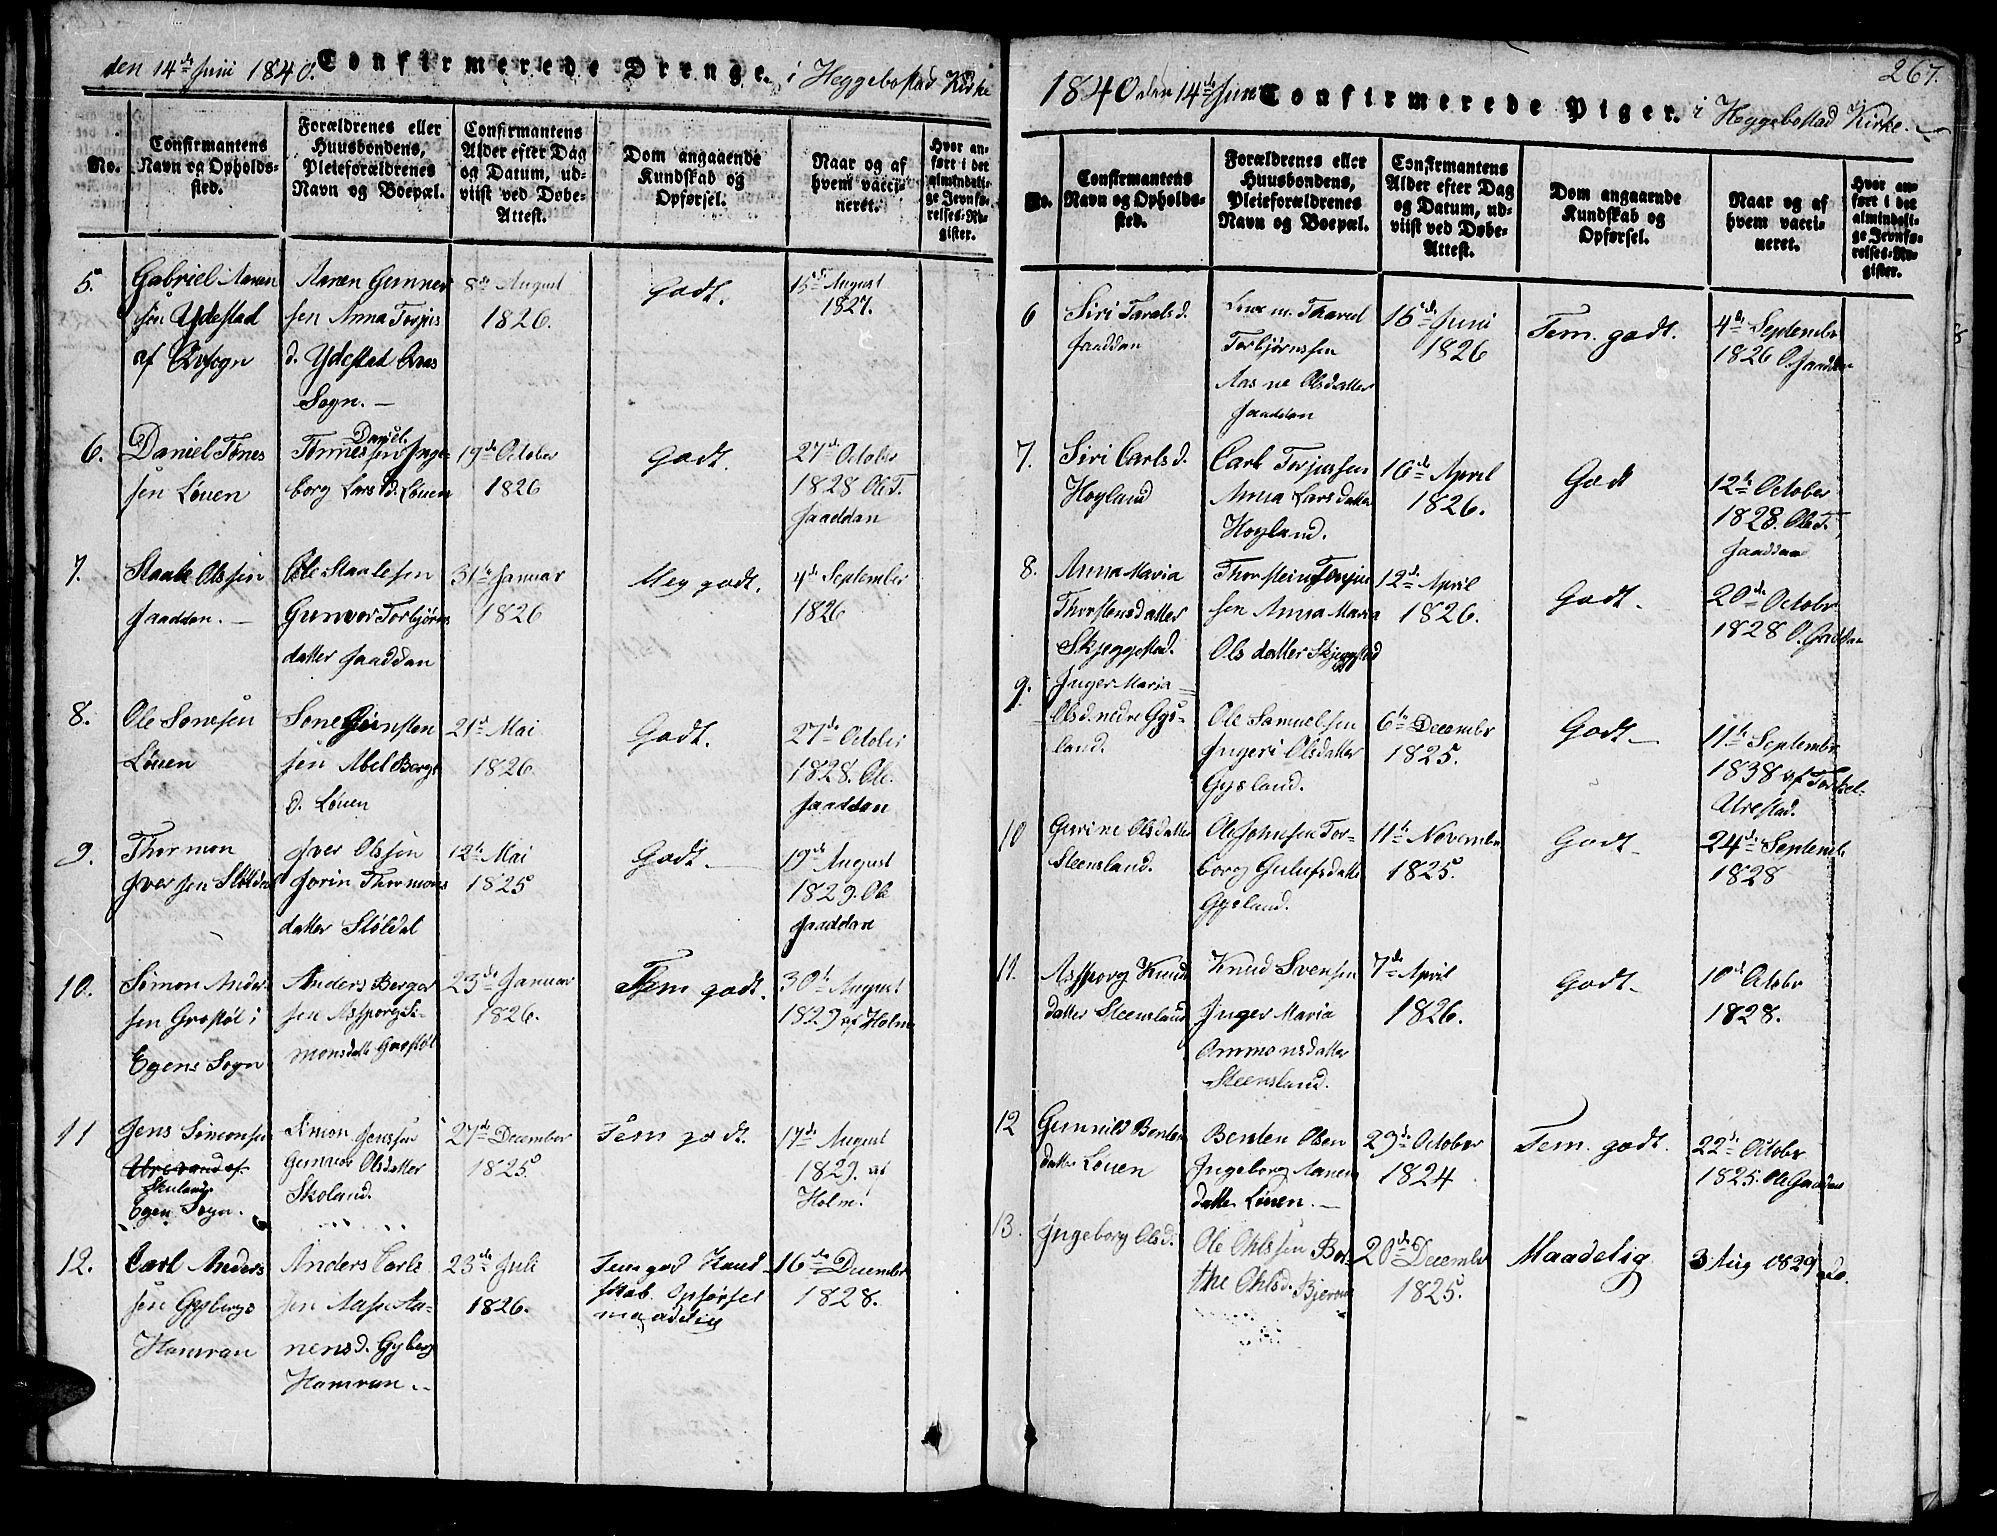 den 14de Juni 1840. Confirmerede Drenge. i Heggebostad Kirke
No.
Confirmantens
Navn og Opholds-
sted.
Forældrenes eller
Huusbondens,
Pleieforældrenes
Navn og Boepæl.
Confirmantens
Alder efter Dag
og Datum, ud-
viist ved Døbe-
Attest.
Dom angaaende
Kundskab og
Opførsel.
Naar og af
hvem vacci-
neret.
Hvor an-
ført i det
almindeli-
ge Jevnfø-
relses-Re-
gister.
5.
Gabriel Aanen
sen Ydestad
af Qvs Sogn
Aanen Gunner
sen Anna Torjus
d. Ydestad Qvas
Sogn. –
8de August
1826.
Godt.
15de August
1827.
6.
Daniel Tønes
sen Løuen
Daniel
Tønnessen Inge-
borg Lars d. Løuen
19de October
1826
Godt.
27de October
1828 Ole T.
Jaaddan
7.
Staale Olssen
Jaaddan. –
Ole Staalesen
Gunvor Torbjørns
datter Jaaddan
31te Januar
1826
Meg godt.
4de September
1826
8.
Ole Sønesen
Løuen
Søne Gunsten
sen Abel Bergs
d. Løuen
21de Mai
1826.
Godt.
27de October
1828. Ole.
Jaaddan
9.
Thormon
Iversen Støldal
Iver Olssen
Jorin Thormons
datter Støldal
12te Mai
1825
Godt. –
19de August
1829. Ole
Jaaddan
10.
Simon Ander
sen Grostøl i
Egens Sogn
Anders Berger
sen Assborg Si-
monsdatt Grostøl
23de Januar
1826.
Tem godt.
30te August
1829 af Holm
11
Jens Simonsen
Urevand af
Skuland
Egen Sogn.
Simon Jenssen
Gunvor Olsdatter
Skoland.
27de December
1825
Tem godt.
17de August
1829. af
Holm.
12.
Carl Anders
sen Gybergs
Hamran
Anders Carls
sen Aase Aa-
nensd. Gyberg
Hamran. –
23de Juli
1826.
Tem god Kund
skab. Opførsel
maadelig
16de December
1828.
267.
1840 den 14de Juni Confirmerede Piger. i Heggebostad Kirke. –
No.
Confirmantens
Navn og Opholds-
sted.
Forældrenes eller
Huusbondens,
Pleieforældrenes
Navn og Boepæl.
Confirmantens
Alder efter Dag
og Datum, ud-
viist ved Døbe-
Attest.
Dom angaaende
Kundskab og
Opførsel.
Naar og af
hvem vacci-
neret.
Hvor an-
ført i det
almindeli-
ge Jevnfø-
relses-Re-
gister.
6
Siri Taralsd.
Jaaddan
Tharal
Torbjørnssen
Aasne Olsdatter
Jaaddan
15de Juni
1826
Tem. godt.
4de September
1826 O. Jaaddan
7.
Siri Carls d.
Hoyland
Carl Torjussen
Anna Lars datter
Hoyland.
16de April
1826.
Godt
12te October
1828. Ole T.
Jaaddan
8.
Anna Maria
Thorstensdatter
Skjeggestad.
Thorstein Torjus
sen Anna Maria
Ols datter Skjeggestad
12de April
1826.
Godt.
20de October
1828 O. Jaddan
9.
Inger Maria
Olsd. nedre Gys-
land.
Ole Samuelsen
Ingeri Olsdatter
Gysland.
6te December
1825.
Godt –
11te September
1838 af Torkel
Urestad.
10
Gurine Olsdatter
Steensland.
Ole Johnsen Tor-
borg Gulufsdatter
Gysland.
11te November
1825.
Godt –
24de Septemb.
1828
11.
Assborg Knuds
datter Steensland
Knud Svensen
Inger Maria
Ommonsdatter
Steensland.
7de April
1826.
Godt –
10de Octobr
1828.
12
Gunnild Bentens
datter Løuen
Benten Olsen
Ingeborg Aanens
datter Løuen. –
29de October
1824
Tem. godt.
22de Octobr
1825. Ole Jaaddan
13.
Ingeborg Olsd.
Ole Ohlssen Ber-
the Ohlsd. Bjerum
20de December
1825.
Maadelig
3 Aug 1829 do.